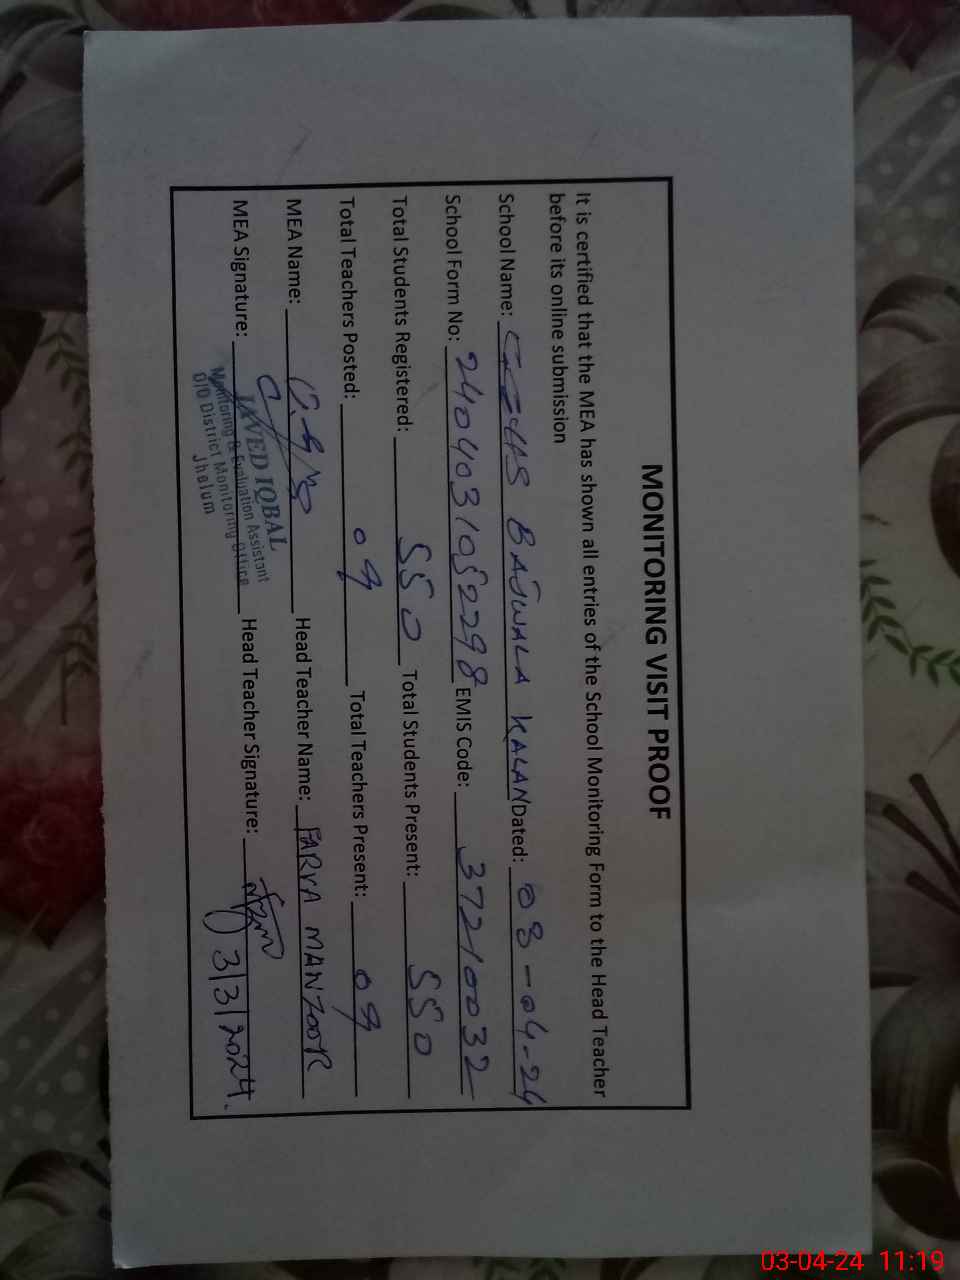 MONITORING VISIT PROOF
It is certified that the MEA has shown all entries of the School Monitoring Form to the Head Teacher
before its online submission
School Name: BAJWALA KALAN Dated: 03-04-24
School Form No: 2404031052298 EMIS Code: 37210032
Total Students Registered: 550 Total Students Present: 550
Total Teachers Posted: 09 Total Teachers Present: 09
MEA Name: Head Teacher Name: FARVA MANZOOR
MEA Signature: Head Teacher Signature: 3/3/2024.
JAVED IQBAL
Monitoring & Evaluation Assistant
O/O District Monitoring Office
Jhelum
03-04-24 11:19